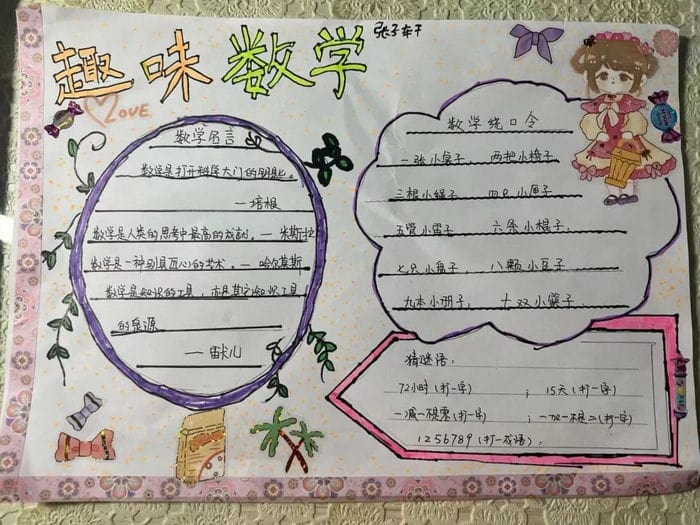 趣味数学
张子轩
LOVE.
数学名言
数学是打开科学大门的钥匙。
— 培根
数学是人类的思考中最高的成就，— 米斯拉
数学是一种别具匠心的艺术。— 哈尔莫斯
数学是知识的工具，亦是其它知识工具
的泉源
— 笛卡儿
数学绕口令
一张小桌子，两把小椅子
三根小绳子 四只小匣子
五管小笛子 六条小棍子，
七只小盘子，八颗小豆子
九本小册子，十双小筷子
猜谜语：
72小时(打一字) ；15天(打一字)
一减一不是零(打一字) ；一加一不是二(打一字)
1256789(打一成语)；